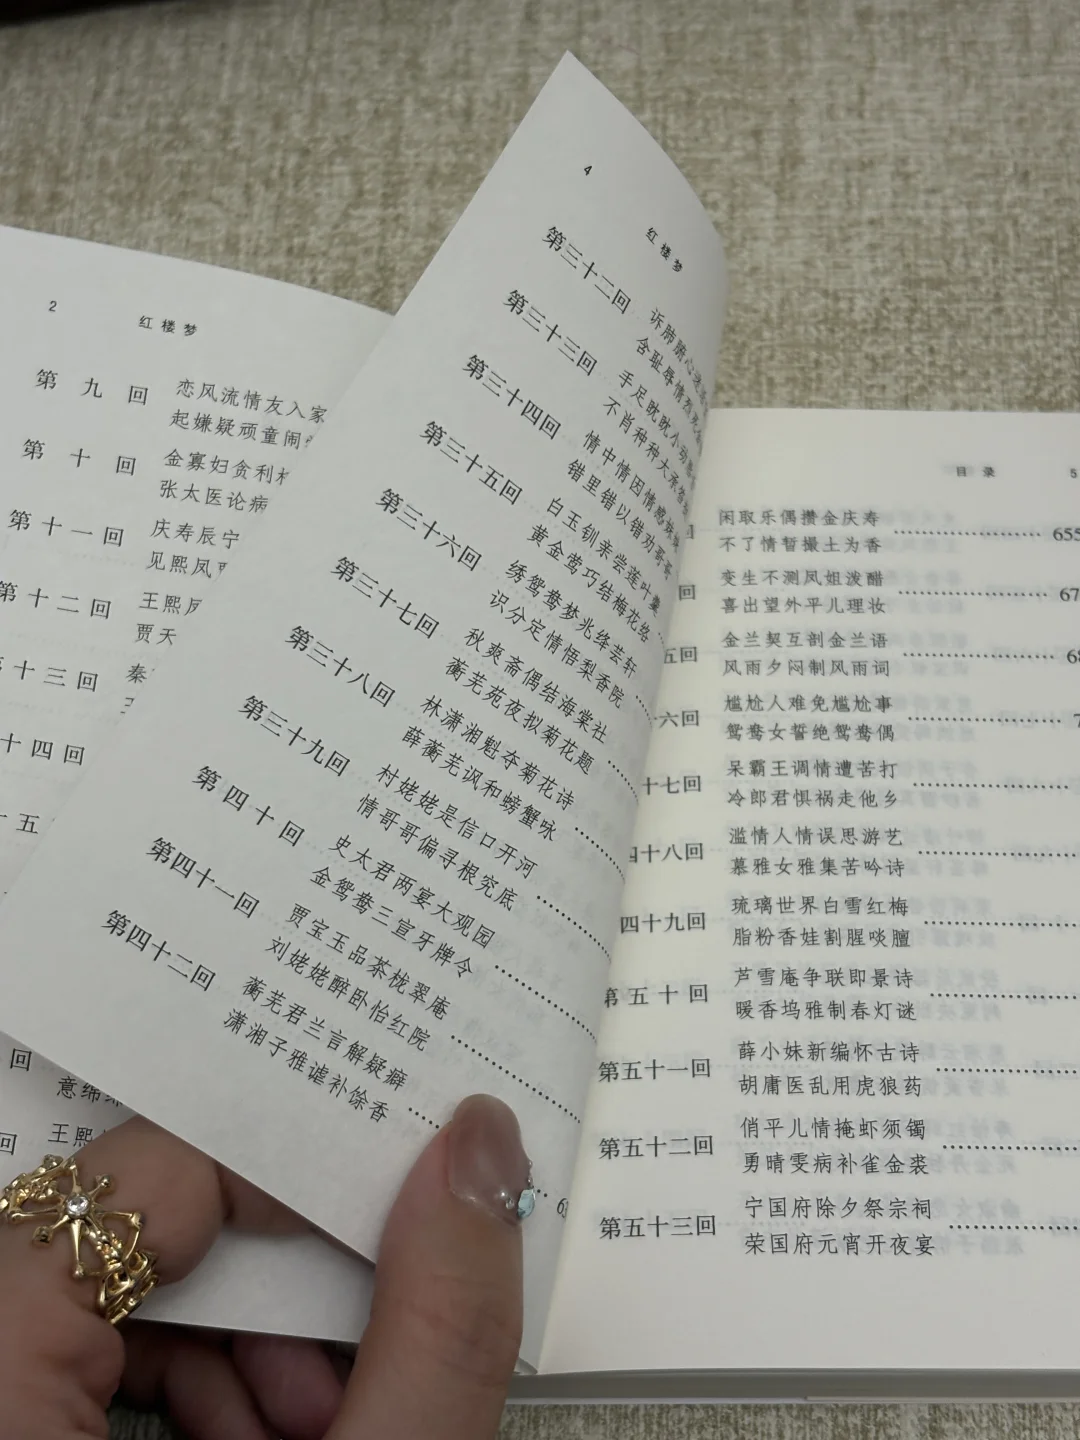 2
红楼梦
第九回
恋风流情友入家
起嫌疑顽童闹
第十回
金寡妇贪利
张太医论病
第十一回
庆寿辰宁
见熙凤
第十二回
王熙
贾天
十三回
秦
十四回
十五
回
意绵
回
王熙
4
红楼梦
第三十二回
诉肺腑心迷
含耻辱情烈死
第三十三回
手足眈眈小动
不肖种种大承笞
第三十四回
情中情因情感妹妹
错里错以错劝哥哥
第三十五回
白玉钏亲尝莲叶羹
黄金莺巧结梅花络
第三十六回
绣鸳鸯梦兆绛芸轩
识分定情悟梨香院
第三十七回
秋爽斋偶结海棠社
蘅芜苑夜拟菊花题
第三十八回
林潇湘魁夺菊花诗
薛蘅芜讽和螃蟹咏
第三十九回
村姥姥是信口开河
情哥哥偏寻根究底
第四十回
史太君两宴大观园
金鸳鸯三宣牙牌令
第四十一回
贾宝玉品茶栊翠庵
刘姥姥醉卧怡红院
第四十二回
蘅芜君兰言解疑癖
潇湘子雅谑补馀香
目录 5
闲取乐偶攒金庆寿
不了情暂撮土为香 655
回
变生不测凤姐泼醋
喜出望外平儿理妆 67
五回
金兰契互剖金兰语
风雨夕闷制风雨词 68
十六回
尴尬人难免尴尬事
鸳鸯女誓绝鸳鸯偶 7
十七回
呆霸王调情遭苦打
冷郎君惧祸走他乡
四十八回
滥情人情误思游艺
慕雅女雅集苦吟诗
四十九回
琉璃世界白雪红梅
脂粉香娃割腥啖膻
第五十回
芦雪庵争联即景诗
暖香坞雅制春灯谜
第五十一回
薛小妹新编怀古诗
胡庸医乱用虎狼药
第五十二回
俏平儿情掩虾须镯
勇晴雯病补雀金裘
第五十三回
宁国府除夕祭宗祠
荣国府元宵开夜宴